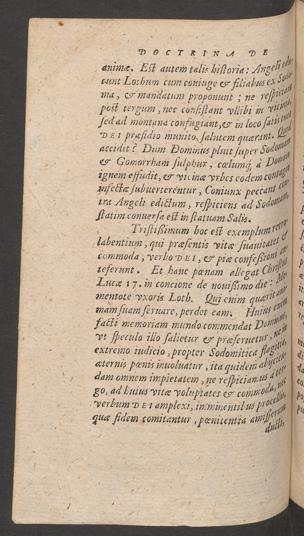 DOCTRINA DE
animæ. Est autem talis historia: Angeli edu-
cunt Lothum cum coniuge & filiabus ex Sodo-
ma, & mandatum proponunt; ne respiciant
post tergum, nec consistant vllibi in vicinia,
sed ad montana confugiant, & in loco satis tuto
DEI præsidio munito, salutem quærant. Quid
accidit? Dum Dominus pluit super Sodomam
& Gomorrham sulphur, cœlumq́; à Domino
ignem effudit, & vicinæ vrbes eodem contagio
infectæ subuerterentur, Coniunx peccans con-
tra Angeli edictum, respiciens ad Sodomam,
statim conuersa est in statuam Salis.
Tristissimum hoc est exemplum retro
labentium, qui præsentis vitæ suauitates &
commoda, verbo DEI, & piæ confessioni an-
teferunt. Et hanc pœnam allegat Christus
Lucæ 17. in concione de nouissimo die: Me-
mentote vxoris Loth. Qui enim quærit ani-
mam suam seruare, perdet eam. Huius enim
facti memoriam mundo commendat Dominus,
vt speculo illo salietur & præseruetur, ne in
extremo iudicio, propter Sodomitica flagitia,
æternis pœnis inuoluatur, ita quidem abijcien-
dam omnem impietatem, ne respiciamus à ter-
go, ad huius vitæ voluptates & commoda, nec
verbum DEI amplexi, imminentibus procellis,
quæ fidem comitantur, pœnitentia amisserum
ducti.